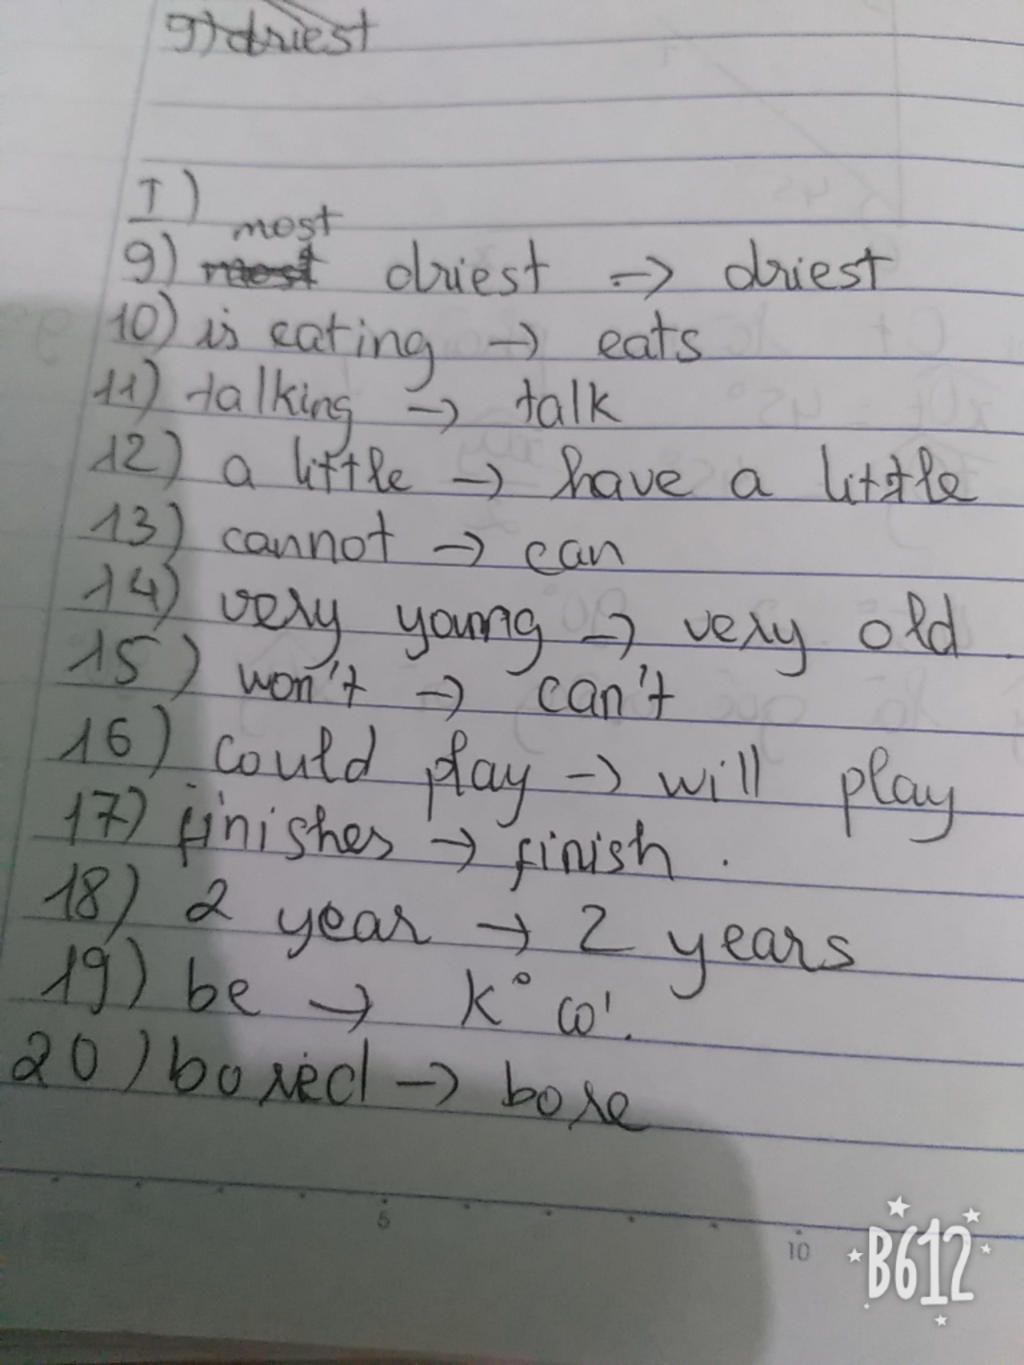 9) driest
I)
most
9) most driest -> driest
10) is eating -> eats
11) talking -> talk
12) a little -> have a little
13) cannot -> can
14) very young -> very old
15) won't -> can't
16) could play -> will play
17) finishes -> finish.
18) 2 year -> 2 years
19) be -> k° có.
20) bored -> bore
5
10
B612